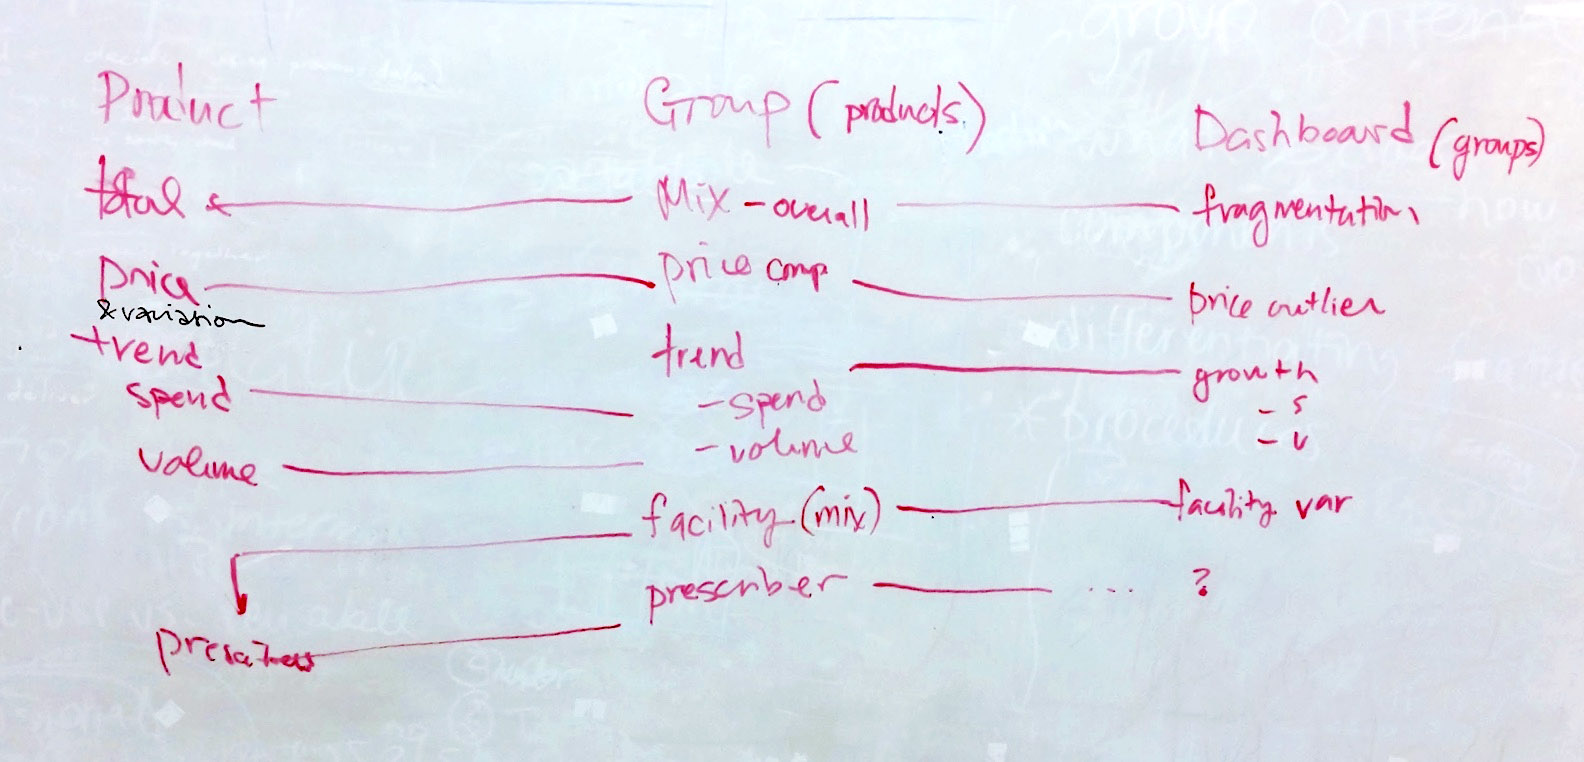 Product
total
price
& variation
trend
spend
volume
Group (products.)
Mix - overall
price comp
trend
- spend
- volume
facility (mix)
prescriber
Dashboard (groups)
fragmentation
price outlier
growth
- s
- v
facility var
... ?
group
how
components
differentiation
procedures